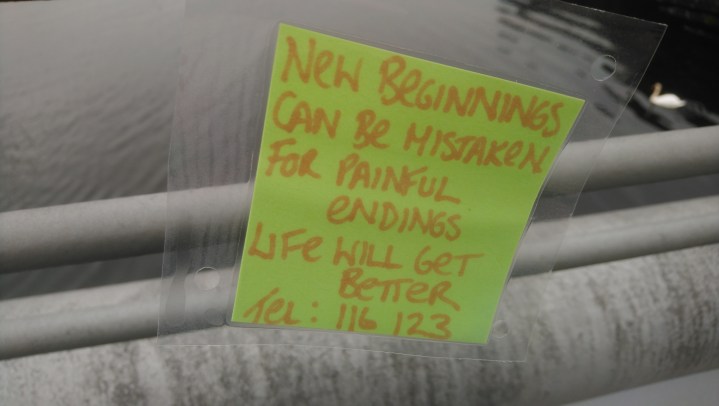 NEW BEGINNINGS
CAN BE MISTAKEN
FOR PAINFUL
ENDINGS
LIFE WILL GET
BETTER
TEL: 116 123